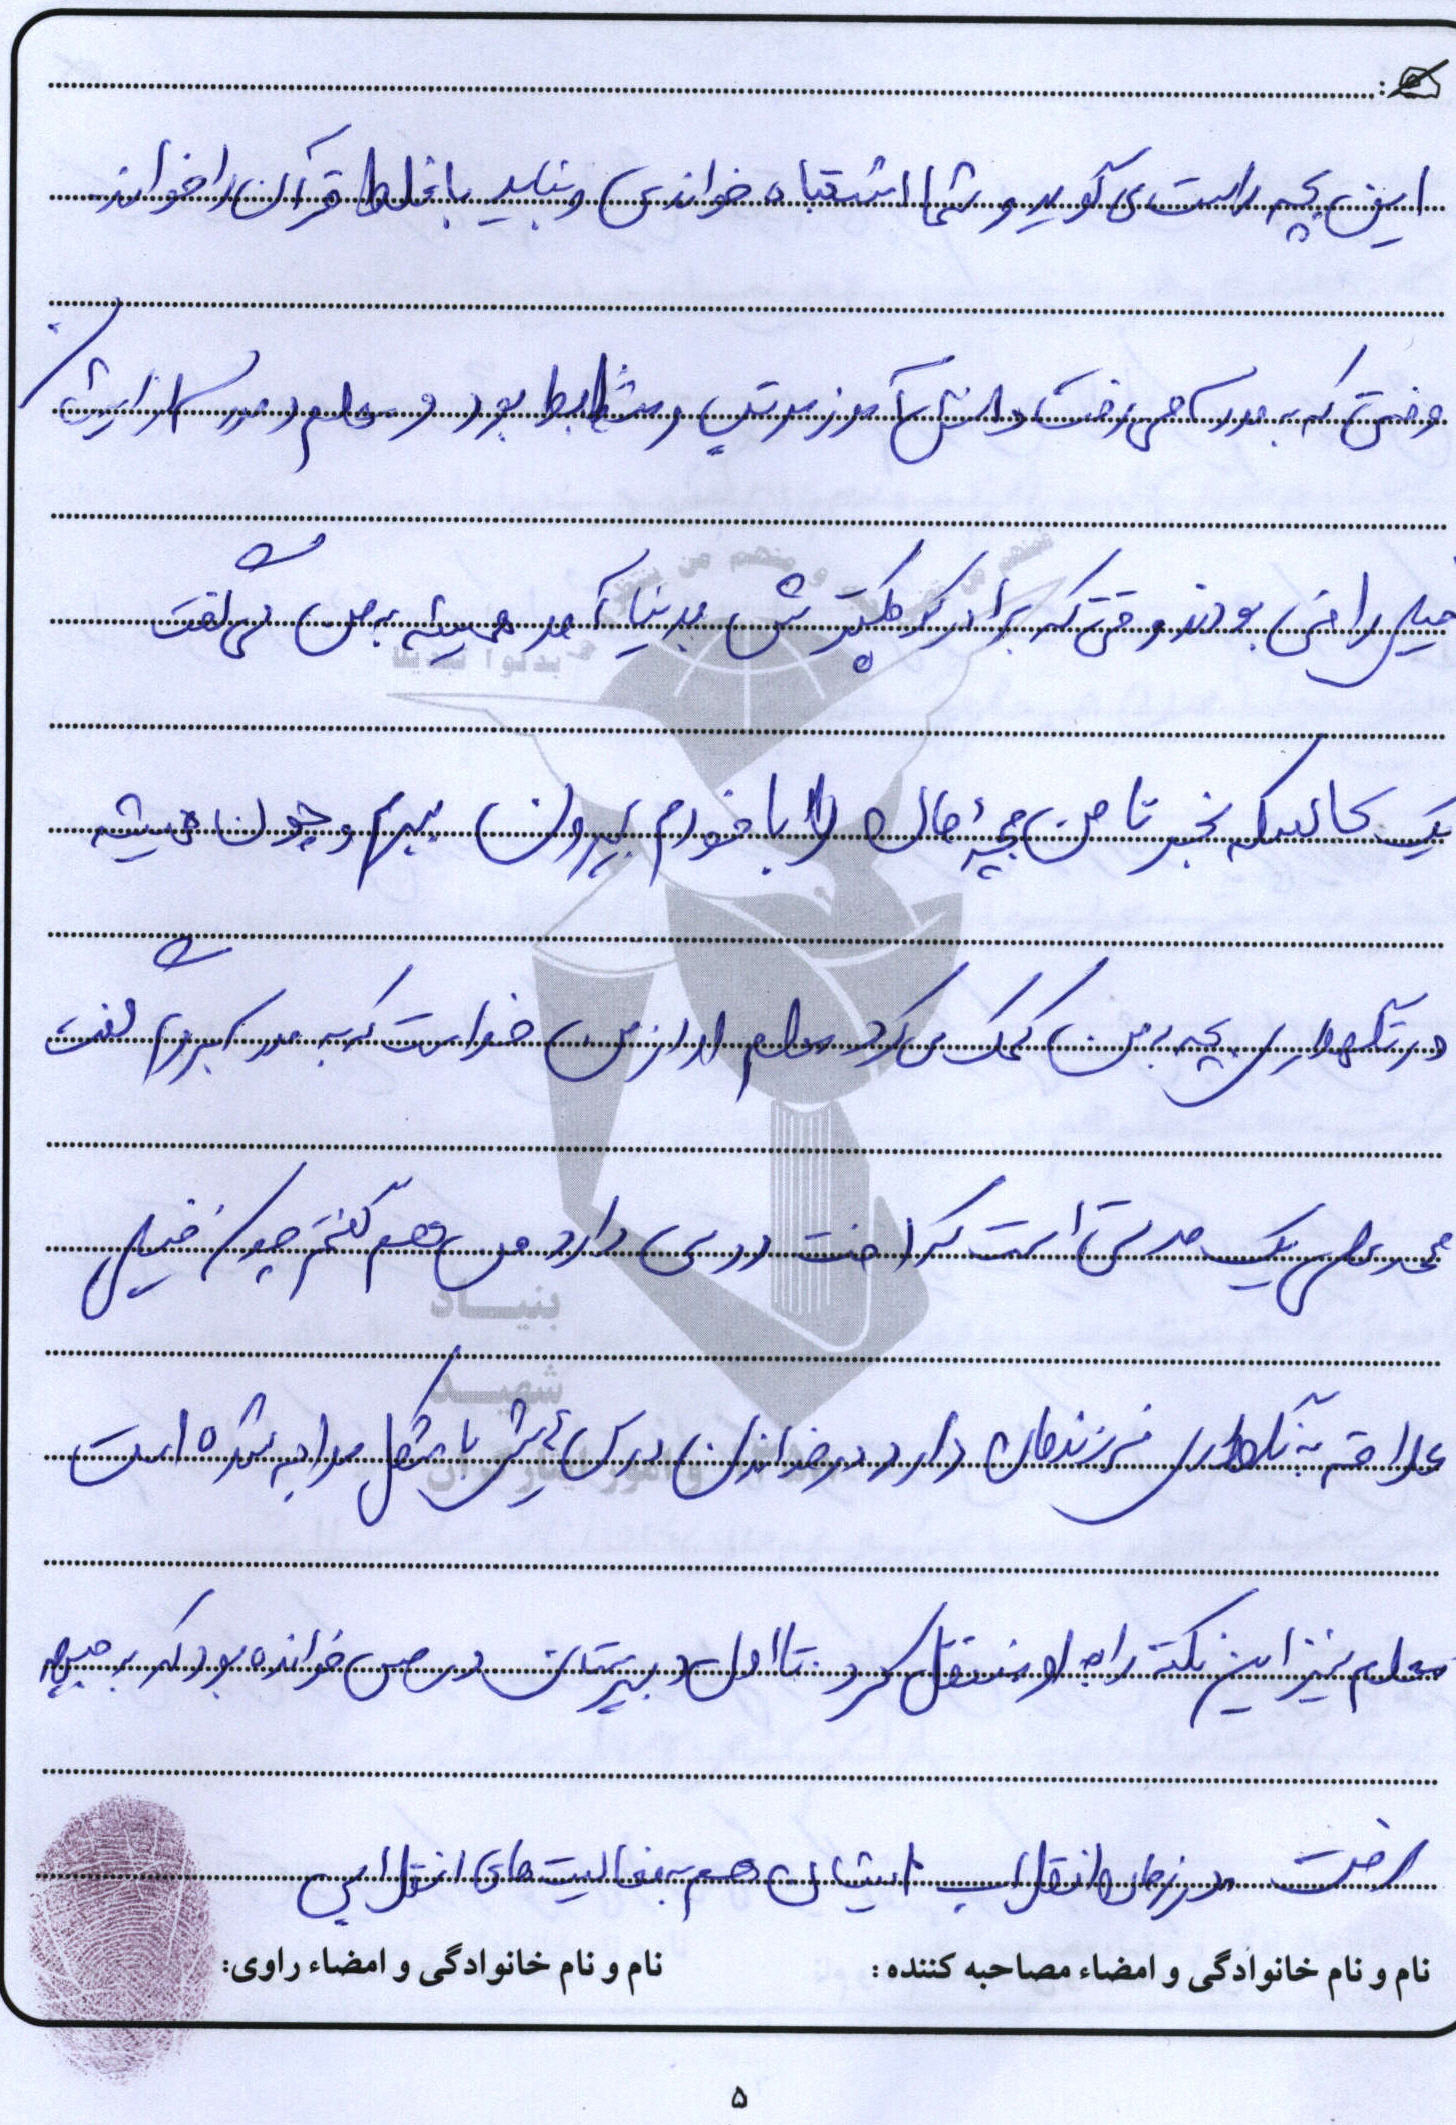 این بچه راست می گوید و شما اشتباه خواندی و نباید با غلط قرآن را خواند
وقتی که به مدرسه می رفت دانش آموز مرتب و منضابط بود و معلم و مدرسه از ایشان
خیلی راضی بودند وقتی که برادر کوچکترش بدنیا آمد همیشه به من می گفت
یک کالسکه بخر تا من بچه مان را با خودم بیرون ببرم و چون همیشه
در نگهداری بچه به من کمک می کرد معلم او از من خواست که به مدرسه بروم گفت
محمد علی یک مدتی است که افت درسی دارد من هم گفتم چون خیلی
علاقه به نگهداری فرزندمان دارد در خواندن درس هایش با مشکل مواجه شده است
معلم نیز این نکته را به او منتقل کرد. تا اول دبیرستان درس خوانده بود که به جبهه
رفت در زمان انقلاب ایشان هم به فعالیت های انقلابی
بنیاد
شهید
و امور ایثارگران
نام و نام خانوادگی و امضاء مصاحبه کننده : نام و نام خانوادگی و امضاء راوی:
۵